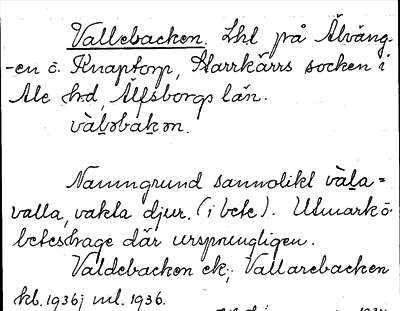 Vallebacken. Lhl på Älväng-
-en ö. Knaptorp, Starrkärrs socken i
Ale hd, Älfsborgs län.
vàḷəbakən.
Namngrund sannolikt vàḷa =
valla, vakta djur. (i bete). Utmark ö.
beteshage där ursprungligen.
Valdebacken ek; Vallarebacken
kb. 1936; ml. 1936.